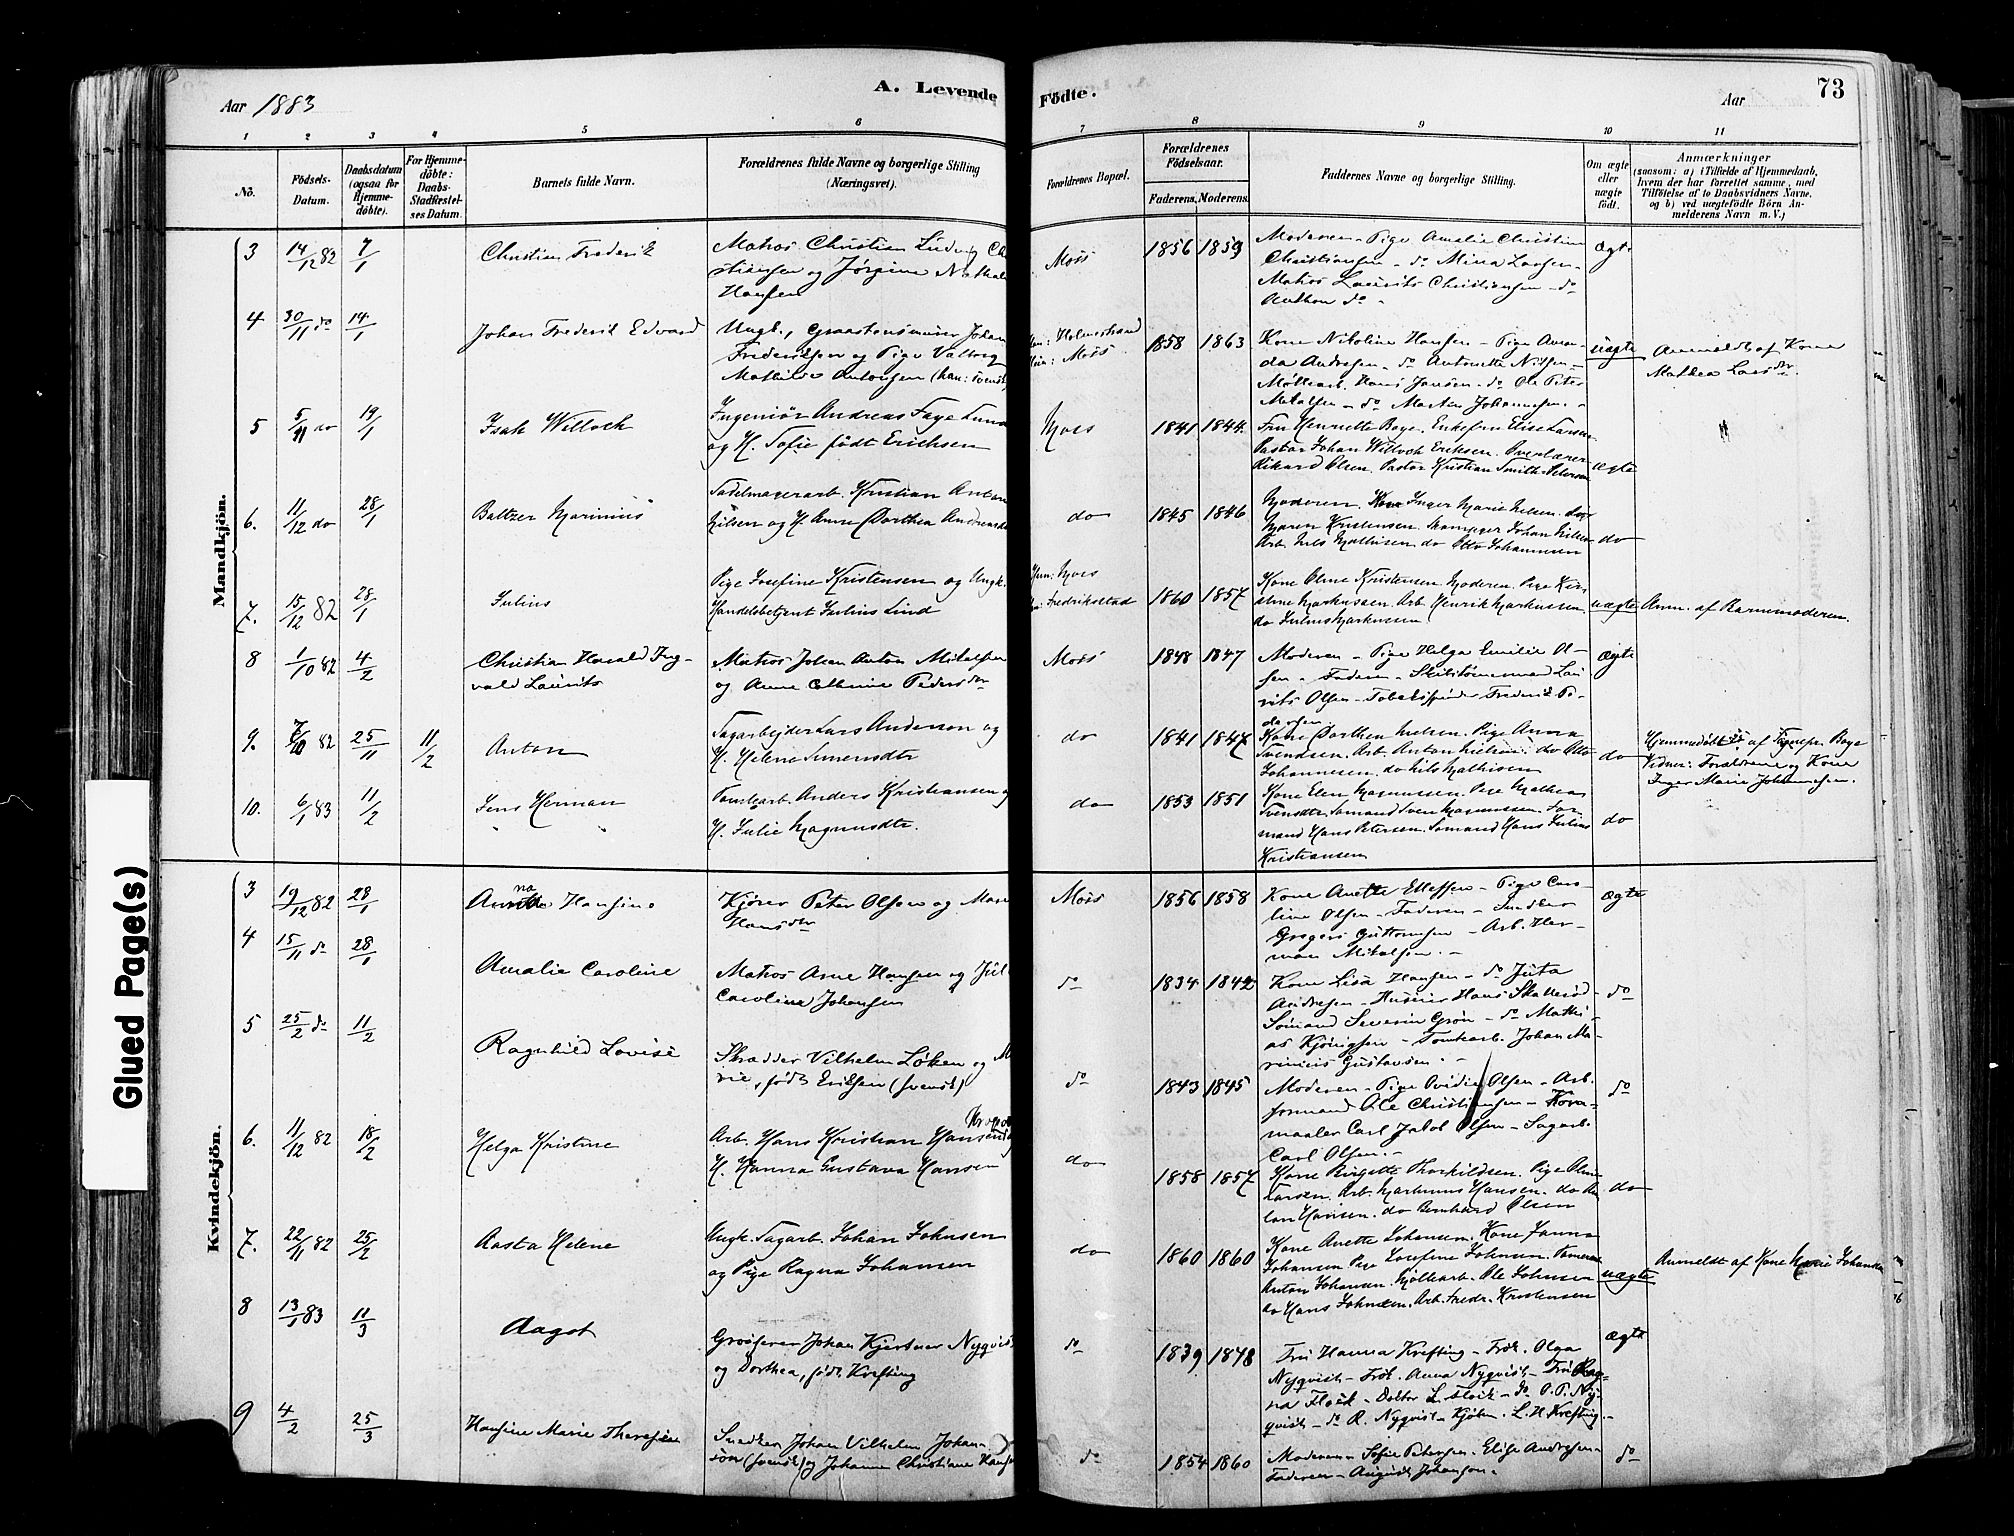 Aar 1883
A. Levende Födte.
Aar
73
1 2 3 4 5 6 7 8 9 10 11
No.
Födsels-Datum.
Daabsdatum (ogsaa for Hjemme-döbte).
For Hjemme-döbte: Daabs-Stadfæstel-ses Datum.
Barnets fulde Navn.
Forældrenes fulde Navne og borgerlige Stilling (Næringsvei).
Forældrenes Bopæl.
Forældrenes Födselsaar.
Faderens. Moderens.
Faddernes Navne og borgerlige Stilling.
Om ægte eller uægte födt.
Anmærkninger
(saasom: a) i Tilfælde af Hjemmedaab, hvem der har forrettet samme, med Tilföielse af to Daabsvidners Navne, og b) ved uægtefödte Börn Anmelderens Navn m. V.)
Mandkjön.
3 14/12 82 7/1 Christian Frederik
Matros Christian Ludvig Chri
stiansen og Jørgine
Hansen
Moss 1856 1859
Moderen – Pige Amalie Christine
Christiansen – do Mina Larsen –
Matros Laurits Christiansen – do
Anthon do –
Ægte
4 30/11 do 14/1 Johan Frederik Edvard
Ungk., Graastensmurer Johan
Frederiksen og Pige Valborg
Mathilde Antonsen (han: svensk
Han: Holmestrand
Hun: Moss
1858 1863
Kone Nikoline Hansen – Pige Aman-
da Andresen – do Antonette Nilsen –
Møllearb. Hans Jansen – do Ole Peter
Mikalsen – do Martin Johannesen. –
uægte
Anmeldt af Kone
Mathea Larsdtr.
5 5/11 do 19/1 Isak Willoch
Ingeniør Andreas Faye Lund
og H. Sofie født Erichsen
Moss 1841 1844
Fru Henriette Boye. Enkefru Elise Larsen
Pastor Johan Willoch Eriksen. Overlærer
Rikard Olsen. Pastor Kristian Smith Petersen
ægte
6. 11/12 do 28/1 Baltzer Marinius
Sadelmagerarb. Kristian Anton
Nilsen og H. Anne Dorthea Andreasdtr
do 1845 1846
Moderen Kone Inger Marie Nilsen. do
Maren Kristensen. Johan Nilsen
Arb. Nils Mathisen do Otto Johannesen
do
7. 15/12 82 28/1 Julius
Pige Josefine Kristensen og Ungk.
Handelsbetjent Julius Lind
Hun: Moss
Han: Fredrikstad
1860 1857
Kone Oline Kristensen Moderen. Pige Kri-
stine Markussen. Arb. Henrik Markussen.
do Julius Markussen
uægte Anm. af Barnemoderen.
8 1/10 82 4/2 Christian Harald Ing-
vald Laurits
Matros Johan Anton Mikalsen
og Anne Cathrine Pedersdtr
Moss 1848 1847
Moderen – Pige Helga Emilie Ol-
sen – Faderen – Skibstømmermand Lau-
rits Olsen – Tobakspinder Frederik Pe-
dersen
Ægte
9. 7/10 82 25/11 11/2 Anton
Sagarbejder Lars Anderson og
H. Helene Simensdtr
do 1841 1847
Kone Dorthea Nielsen. Pige Anna
Svendsen. Arb. Anton Nielsen. do Otto
Johannesen. do Nils Mathisen
do
Hjemmedøbt af Boye
Vidner: Forældrene og Kone
Inger Marie Johannesen.
10. 6/1 83 11/2 Jens Herman
Tomtearb. Anders Kristiansen og
H. Julie Magnusdtr.
do 1853 1851
Kone Elen Magnussen. Pige Mathea
Svensdtr. Sømand Sven Magnussen. For-
mand Hans Petersen. Sømand Hans Julius
Kristiansen
do
Kvindekjön.
3 19/12 82 28/1 Anna Hansine
Kjører Peter Olsen og Mar
Hansdtr
Moss 1856 1858
Kone Anette Ellefsen – Pige Caro-
line Olsen – Faderen – Snedker
Gregers Guttormsen – Arb. Her-
man Mikalsen. –
Ægte
4 15/11 do 28/1 Amalie Caroline
Matros Arne Hansen og Jul
Caroline Johansen
do 1834 1842
Kone Lisa Hansen – do Juta
Andresen – Husier Hans Skallerød –
Sømand Severin Grøn – do Mathi-
as Kjønigsen – Tomtearb. Johan Ma-
rinius Gustavsen. –
do
5 25/2 do 11/2 Ragnhild Lovise
Skrædder Vilhelm Løken og Ma
rie, født Eriksen (svensk)
do 1843 1845
Moderen – Pige Ovidia Olsen – Arb.
formand Ole Christiansen –
maaler Carl Jakob Olsen – Sagarb.
Carl Olsen. –
do
6. 11/12 82 18/2 Helga Kristine
Arb. Hans Kristian Hansen
H. Hanna Gustava Hansen
do 1858 1857
Kone Birgitte Thorkildsen. Pige Oline
Larsen. Arb. Martinius Hansen. do
Hansen. do Bernhard Olsen
do
7. 22/11 82 25/2 Aasta Helene
Ungk. Sagarb. Johan Johnsen
og Pige Ragna Johansen
do 1860 1860
Kone Anette Johansen. Kone Janna
Johansen Pige Josefine Johnsen.
Anton Johansen. Møllearb. Ole Johnsen
do Hans Johnsen. Arb. Fredr. Kristensen
uægte
Anmeldt af Kone Marie Johansen
8 13/1 83 11/3 Aagot
Grosserer Johan Kjerstner Nyqvist
og Dorthea, født Krefting
do 1839 1848
Fru Hanna Krefting – Frøk. Olga
Nyqvist – Frøk. Anna Nyqvist – Fru Rag-
na Floek – Doktor L. Floek – do O. P. Ny-
qvist – do R. Nyqvist – Kjøbm. L. H. Krefting. –
Ægte
9 4/2 25/3 Hansine Marie Theresia
Snedker Johan Vilhelm Johan-
son (svensk) og Johanne Christiane Hans
do 1854 1860
Moderen – Sofie Petersen – Elise Andresen –
Faderen – August Johanson. –
do
Glued Page(s)